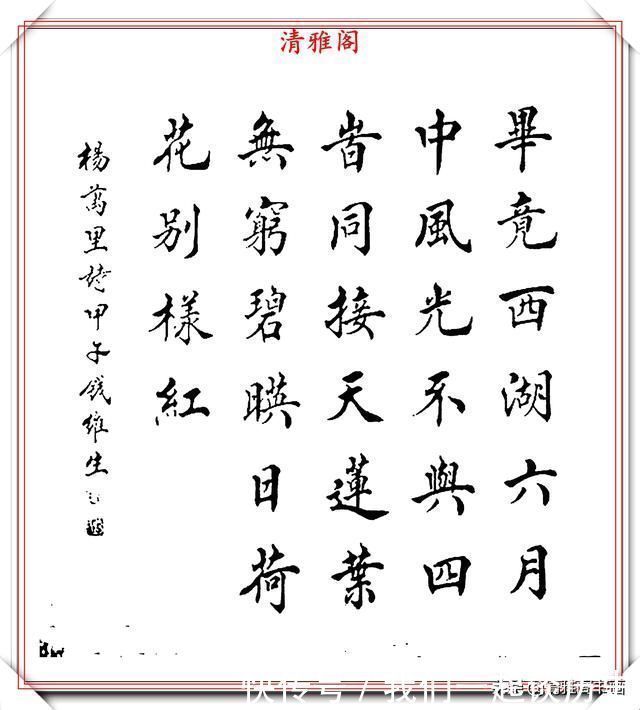 清雅阁
畢竟西湖六月
中風光不與四
旹同接天蓮葉
無窮碧暎日荷
花别樣紅
楊萬里詩甲午錢維生
快传号/我们一起